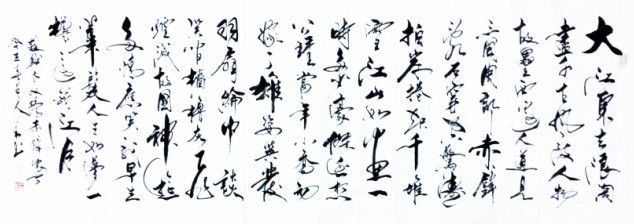 大江東去浪淘
盡千古風流人物
故壘西邊人道是
三國周郎赤壁
亂石穿空驚濤
拍岸捲起千堆
雪江山如畫一
時多少豪傑遙想
公瑾當年小喬初
嫁了雄姿英發
羽扇綸巾談
笑間檣櫓灰飛
煙滅故國神遊
多情應笑我早生
華髮人生如夢一
樽還酹江月